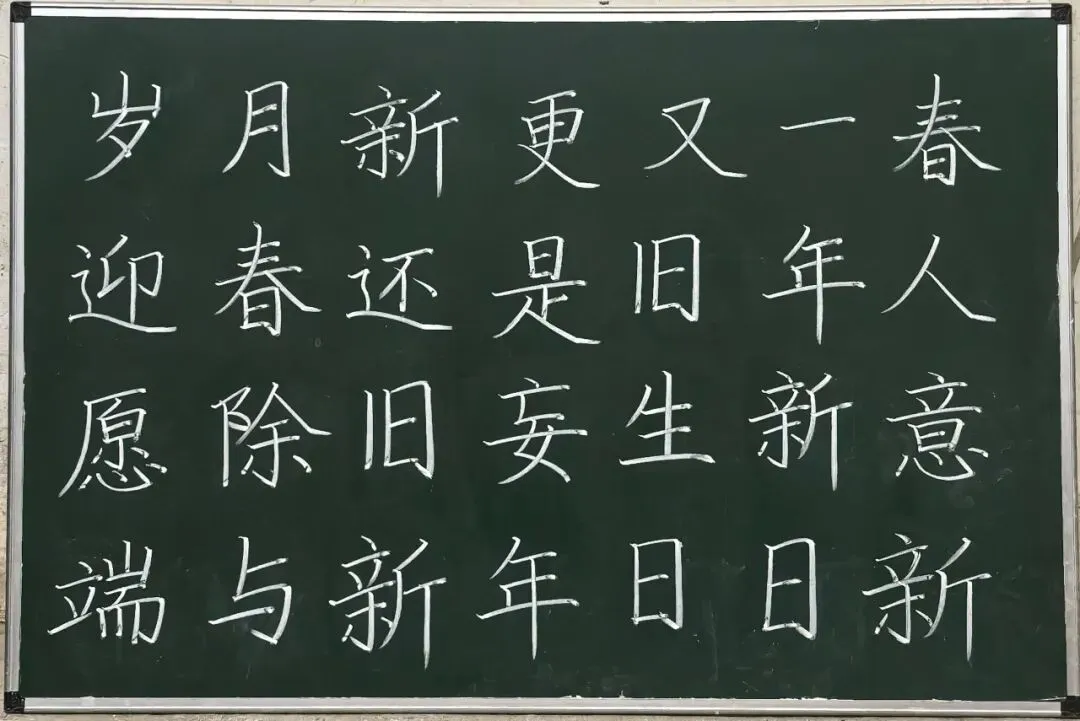 岁月新更又一春
迎春还是旧年人
愿除旧妄生新意
端与新年日日新